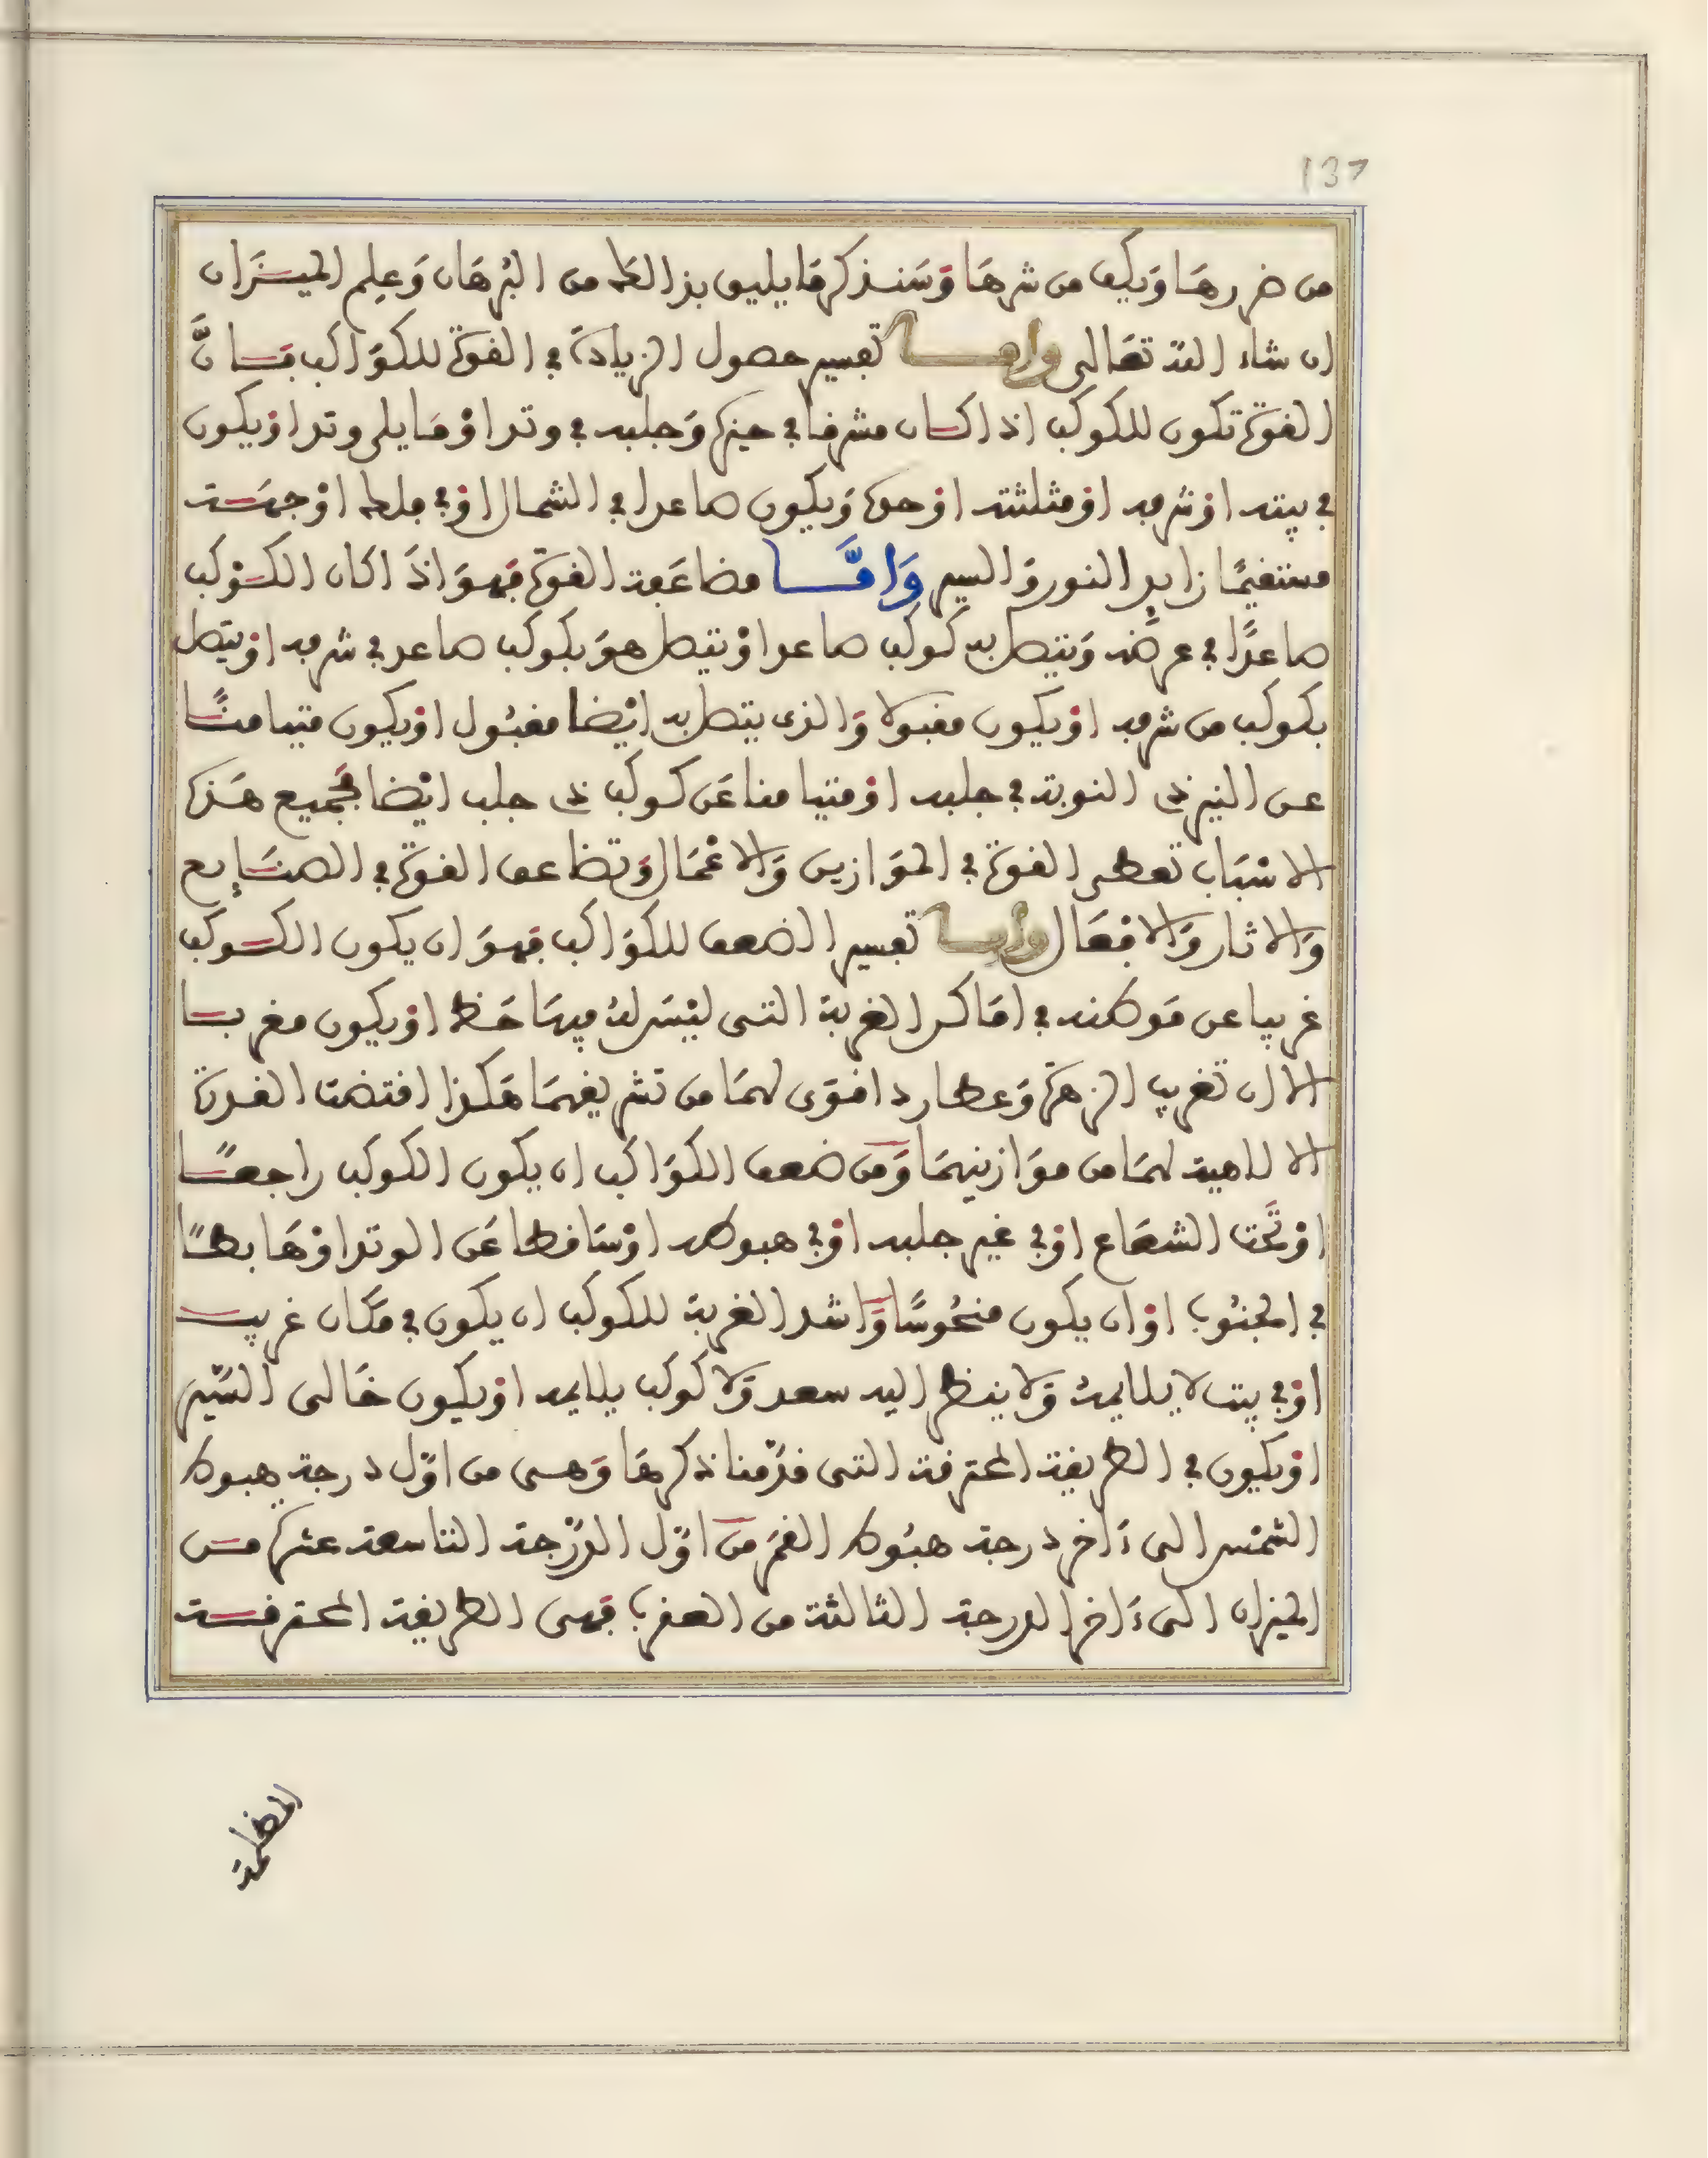 137
من ضررها ويكف من شرها وسنذكر ما يليق بذالك من البرهان وعلم الميزان
ان شاء الله تعالى واما تفسير حصول الزيادة في القوة للكواكب فان
القوة تكون للكوكب اذا كان مشرفا في حيزه وجلبه في وتد او ما يلي وتد او يكون
في بيته او شرفه او مثلثته او حده ويكون صاعدا في الشمال او في ملك او جهته
مستقيمًا زايد النور والسير وَامَّا مضاعفة القوة فهو اذا كان الكوكب
صاعدًا في عرضه ويتصل به كوكب صاعد او يتصل هو بكوكب صاعد في شرفه او يتصل
بكوكب من شرفه او يكون مقبولا والذي يتصل به ايضا مقبول او يكون متيامنًا
عن النير ذى النوبة في جلبه او متيامنا عن كوكب ذى جلب ايضا فجميع هذه
الاسباب تعطى القوة في الموازين والاعمال وتضاعف القوة في الصنايع
والاثار والافعال واما تفسير الضعف للكواكب فهو ان يكون الكوكب
غريبا عن موطنه في اماكن الغربة التى ليس له فيها حظ او يكون مغربا
الا ان تغريب الزهرة وعطارد اقوى لهما من تشريقهما هكذا اقتضت القدرة
الالاهية لهما من موازنيهما ومن ضعف الكواكب ان يكون الكوكب راجعًا
او تحت الشعاع او في غير جلبه او في هبوطه او ساقطا عن الوتد او هابطًا
في الجنوب او ان يكون منحوسًا واشد الغربة للكوكب ان يكون في مكان غريب
او في بيت لا يلايمه ولا ينظر اليه سعد ولا كوكب يلايمه او يكون خالى السير
او يكون في الطريقة المحترقة التى قدّمنا ذكرها وهى من اوّل درجة هبوط
الشمس الى ءاخر درجة هبوط القمر من اوّل الدّرجة التاسعة عشره من
الميزان الى ءاخر الدرجة الثالثة من العقرب فهى الطريقة المحترقة
المظلمة